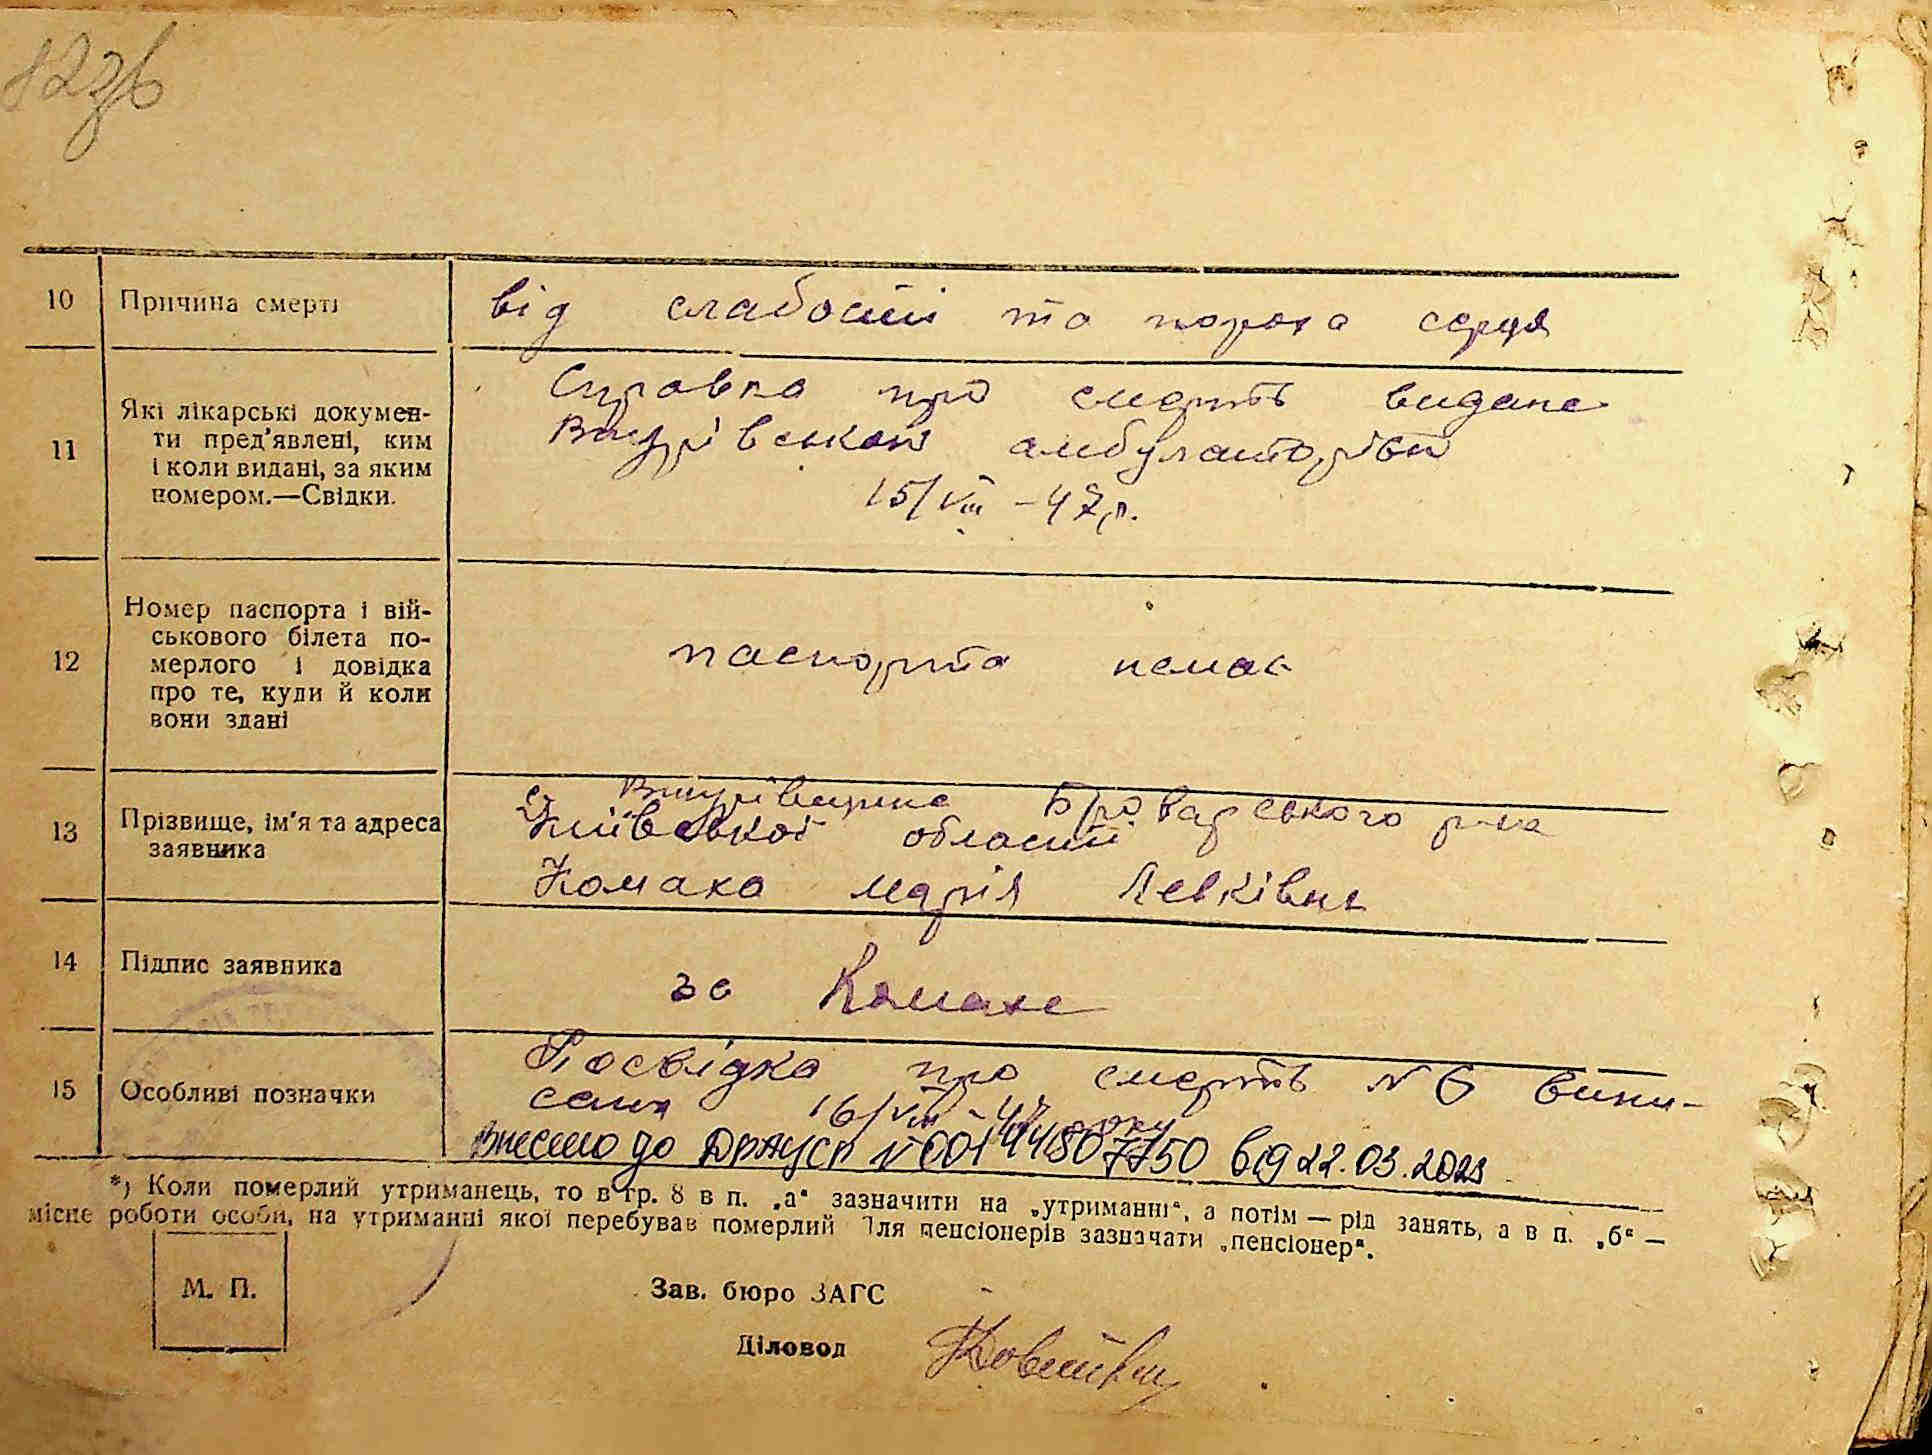 12зв
10 Причина смерті від слабості та порока серця
11 Які лікарські докумен-
ти пред'явлені, ким
і коли видані, за яким
номером.—Свідки.
Справка про смерть видане
Вигурівською амбулаторією
15/VIII –47 р.
12 Номер паспорта і вій-
ськового білета по-
мерлого і довідка
про те, куди й коли
вони здані
паспорта немає
13 Прізвище, ім'я та адреса
заявника
с. Вигурівщина Броварського р-на
Київської області
Комаха Марія Левківна
14 Підпис заявника за Комаха
15 Особливі позначки
Посвідка про смерть № 6 випи-
сана 16/VIII – 47 року
Внесено до ДРАЦСГ № 00144807750 від 22.03.2023
*) Коли померлий утриманець, то в гр. 8 в п. „а“ зазначити на „утриманні“, а потім — рід занять, а в п. „б“ —
місце роботи особи, на утриманні якої перебував померлий Для пенсіонерів зазначати „пенсіонер“.
М. П.
Зав. бюро ЗАГС
Діловод